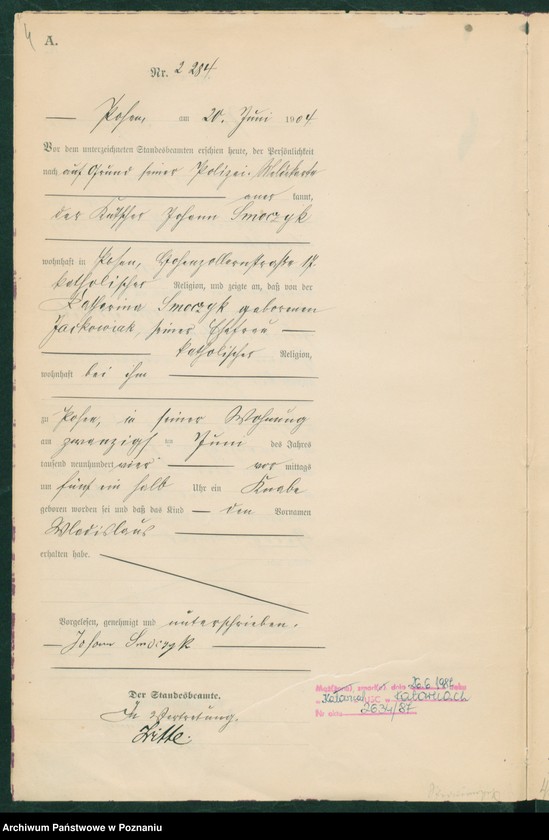 4
A.
Nr. 2 284.
Posen, am 20. Juni 1904
Vor dem unterzeichneten Standesbeamten erschien heute, der Persönlichkeit
nach auf Grund seiner Polizei-Meldekarte
aner kannt,
der Kutscher Johann Smoczyk
wohnhaft in Posen, Hohenzollernstraße 17.
katholischer Religion, und zeigte an, daß von der
Katharina Smoczyk geborenen
Jackowiak, seiner Ehefrau
katholischer Religion,
wohnhaft bei ihm
zu Posen, in seiner Wohnung
am zwanzigsten Juni des Jahres
tausend neunhundert vier vor mittags
um fünf ein halb Uhr ein Knabe
geboren worden sei und daß das Kind den Vornamen
Wladislaus
erhalten habe.
Vorgelesen, genehmigt und unterschrieben.
Johann Smoczyk
Der Standesbeamte.
In Vertretung.
Witte.
zmarł dnia 26.6.1987
USC Katowicach
Nr aktu 2634/87
Archiwum Państwowe w Poznaniu